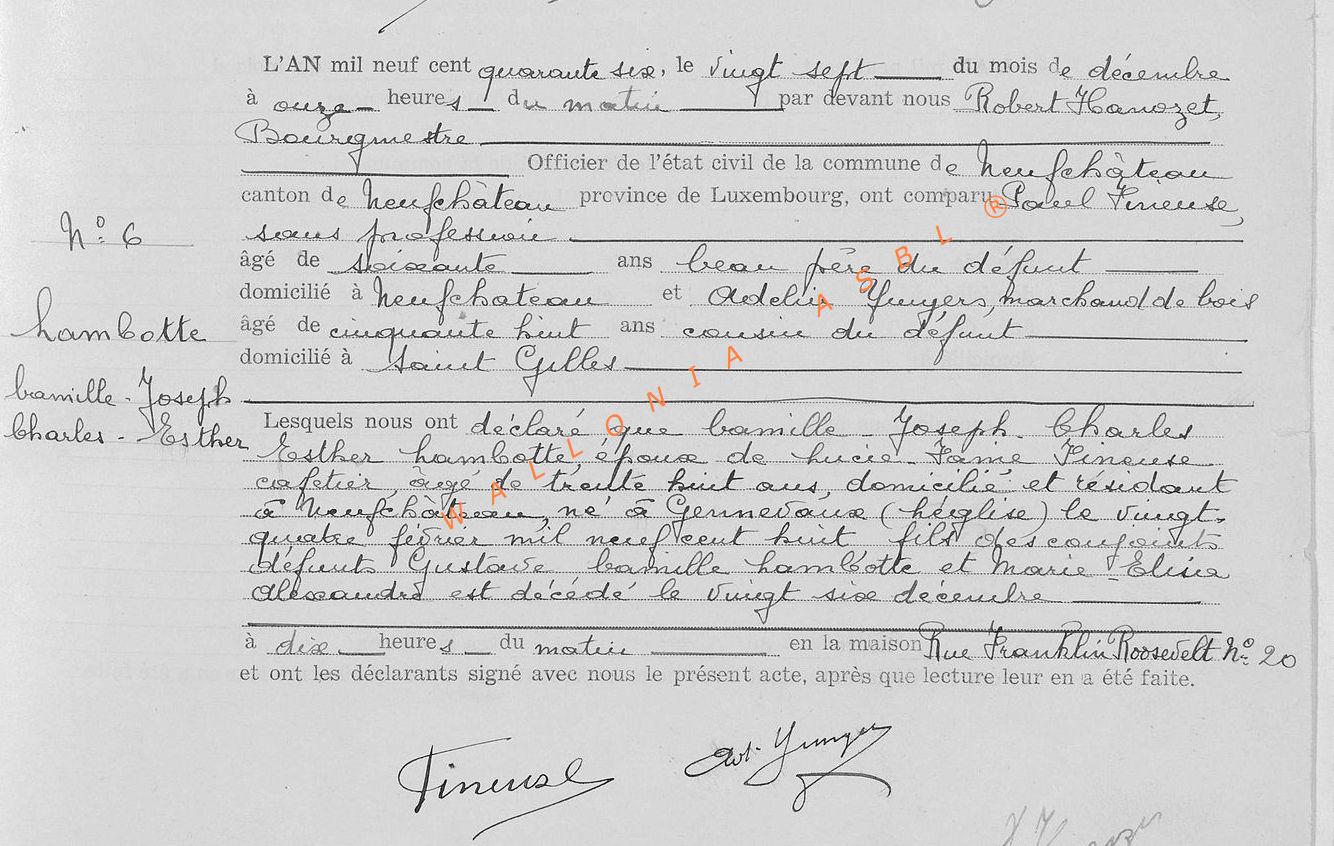 L'AN mil neuf cent quarante six, le vingt sept du mois de décembre
à onze heures du matin par devant nous Robert Hanozet,
Bourgmestre
Officier de l'état civil de la commune de Neufchâteau
canton de Neufchâteau province de Luxembourg, ont comparu Paul Fineuse,
N° 6
sans profession
âgé de soixante ans beau père du défunt
domicilié à Neufchateau et Adelin Yungers, marchand de bois
Lambotte
âgé de cinquante huit ans cousin du défunt
domicilié à Saint Gilles
Camille - Joseph
Charles - Esther
Lesquels nous ont déclaré que Camille Joseph Charles
Esther Lambotte, époux de Lucie Fineuse
cafetier, âgé de trente huit ans, domicilié et résidant
à Neufchâteau, né à Gennevaux (Léglise) le vingt-
quatre février mil neuf cent huit fils des conjoints
défunts Gustave Camille Lambotte et Marie Elisa
Alexandre est décédé le vingt six décembre
à dix heures du matin en la maison Rue Franklin Roosevelt N° 20
et ont les déclarants signé avec nous le présent acte, après que lecture leur en a été faite.
Fineuse
WALLONIA ASBL ®